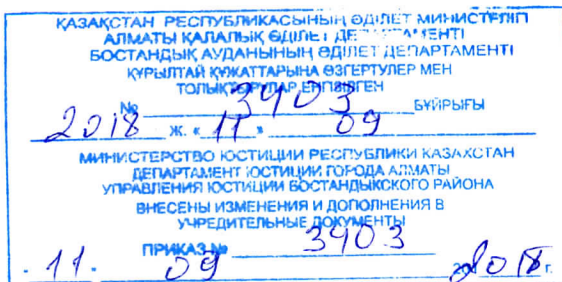 ҚАЗАҚСТАН РЕСПУБЛИКАСЫНЫҢ ӘДІЛЕТ МИНИСТРЛІГІ
АЛМАТЫ ҚАЛАЛЫҚ ӘДІЛЕТ ДЕПАРТАМЕНТІ
БОСТАНДЫҚ АУДАНЫНЫҢ ӘДІЛЕТ ДЕПАРТАМЕНТІ
ҚҰРЫЛТАЙ ҚҰЖАТТАРЫНА ӨЗГЕРТУЛЕР МЕН
ТОЛЫҚТЫРУЛАР ЕНГІЗІЛГЕН
№ 3403 БҰЙРЫҒЫ
2018 ж. « 11 » 09
МИНИСТЕРСТВО ЮСТИЦИИ РЕСПУБЛИКИ КАЗАХСТАН
ДЕПАРТАМЕНТ ЮСТИЦИИ ГОРОДА АЛМАТЫ
УПРАВЛЕНИЯ ЮСТИЦИИ БОСТАНДЫКСКОГО РАЙОНА
ВНЕСЕНЫ ИЗМЕНЕНИЯ И ДОПОЛНЕНИЯ В
УЧРЕДИТЕЛЬНЫЕ ДОКУМЕНТЫ
ПРИКАЗ № 3403
« 11 » 09 2018 г.